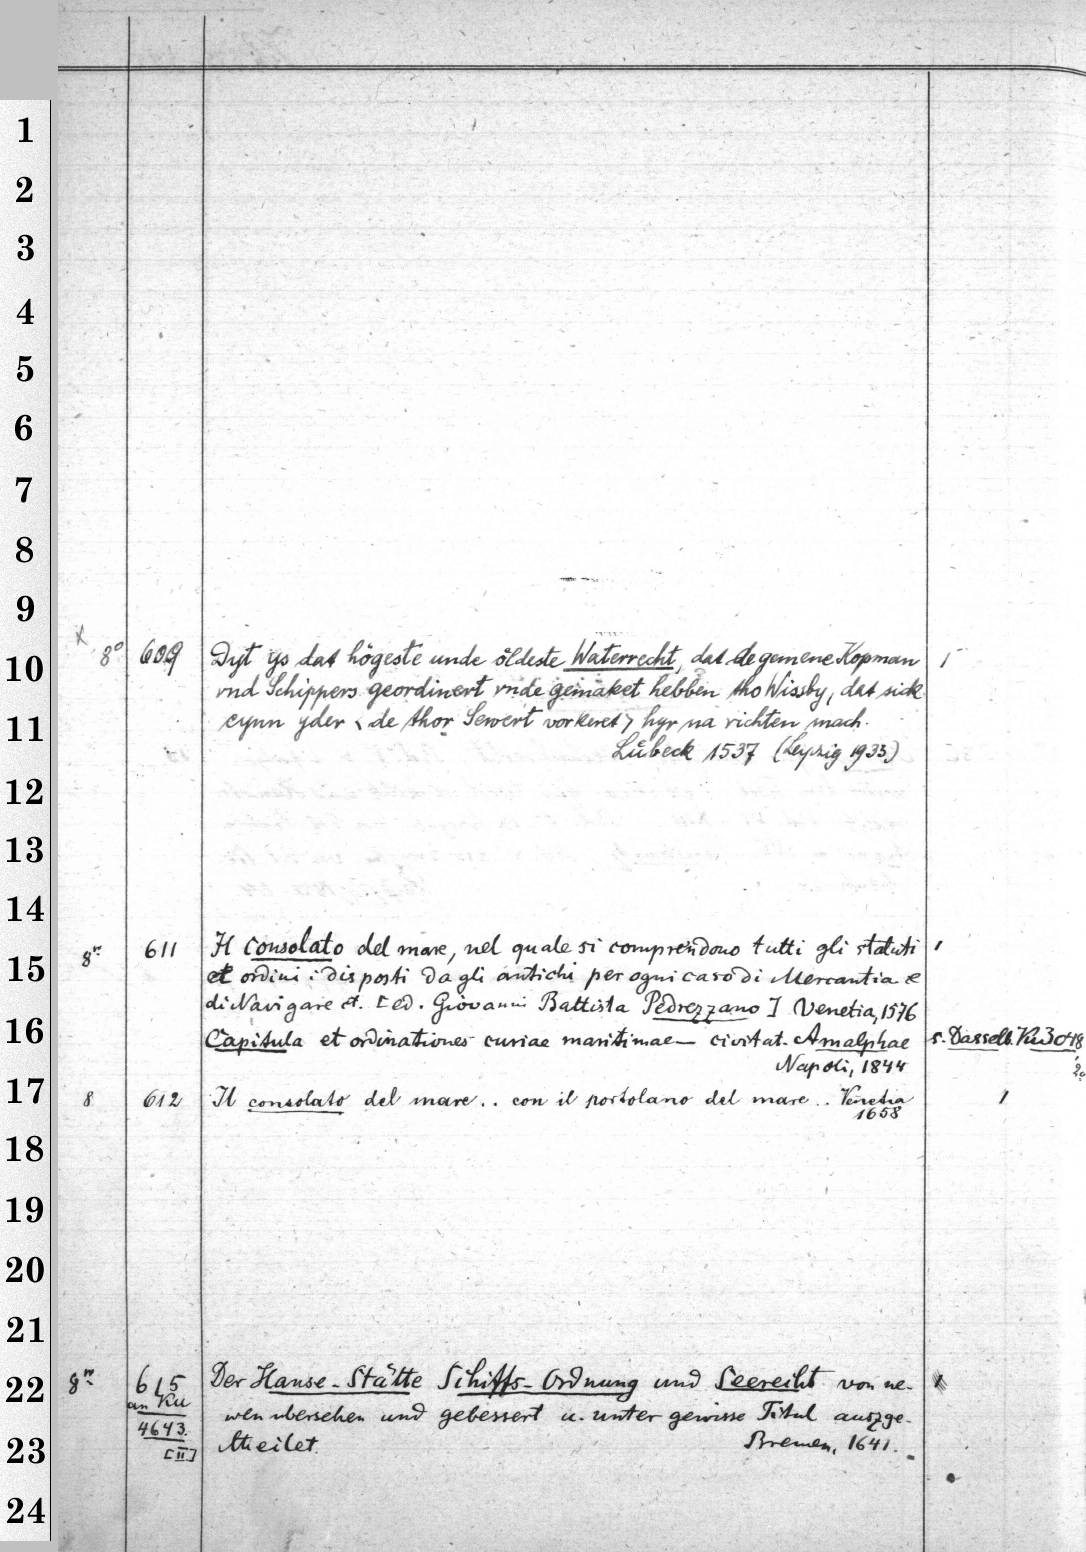 1
2
3
4
5
6
7
8
9
10
11
12
13
14
15
16
17
18
19
20
21
22
23
24
x 8° 609 Dyt ys dat högeste unde öldeste Waterrecht, dat de gemene Kopman 1
vnd Schippers geordinert vnde gemaket hebben tho Wissby, dat sick
eynn yder (de thor Sewert vorkeret) hyr na richten mach.
Lübeck 1537 (Leipzig 1933)
8° 611 Il Consolato del mare, nel quale si comprendono tutti gli statuti 1
et ordini: disposti da gli antichi per ogni caso di Mercantia e
di Navigare et. [ed. Giovanni Battista Pedrezzano] Venetia, 1576
Capitula et ordinationes curiae maritimae — civitat. Amalphae s. Dasselb. Ku 3048
Napoli, 1844
8 612 Il consolato del mare.. con il portolano del mare.. Venetia 1
1658
8° 615 Der Hanse-Stätte Schiffs-Ordnung und Seerecht von ne- 1
an Ku
wen ubersehen und gebessert u. unter gewisse Titul auszge-
4643.
theilet. Bremen, 1641.
[II]